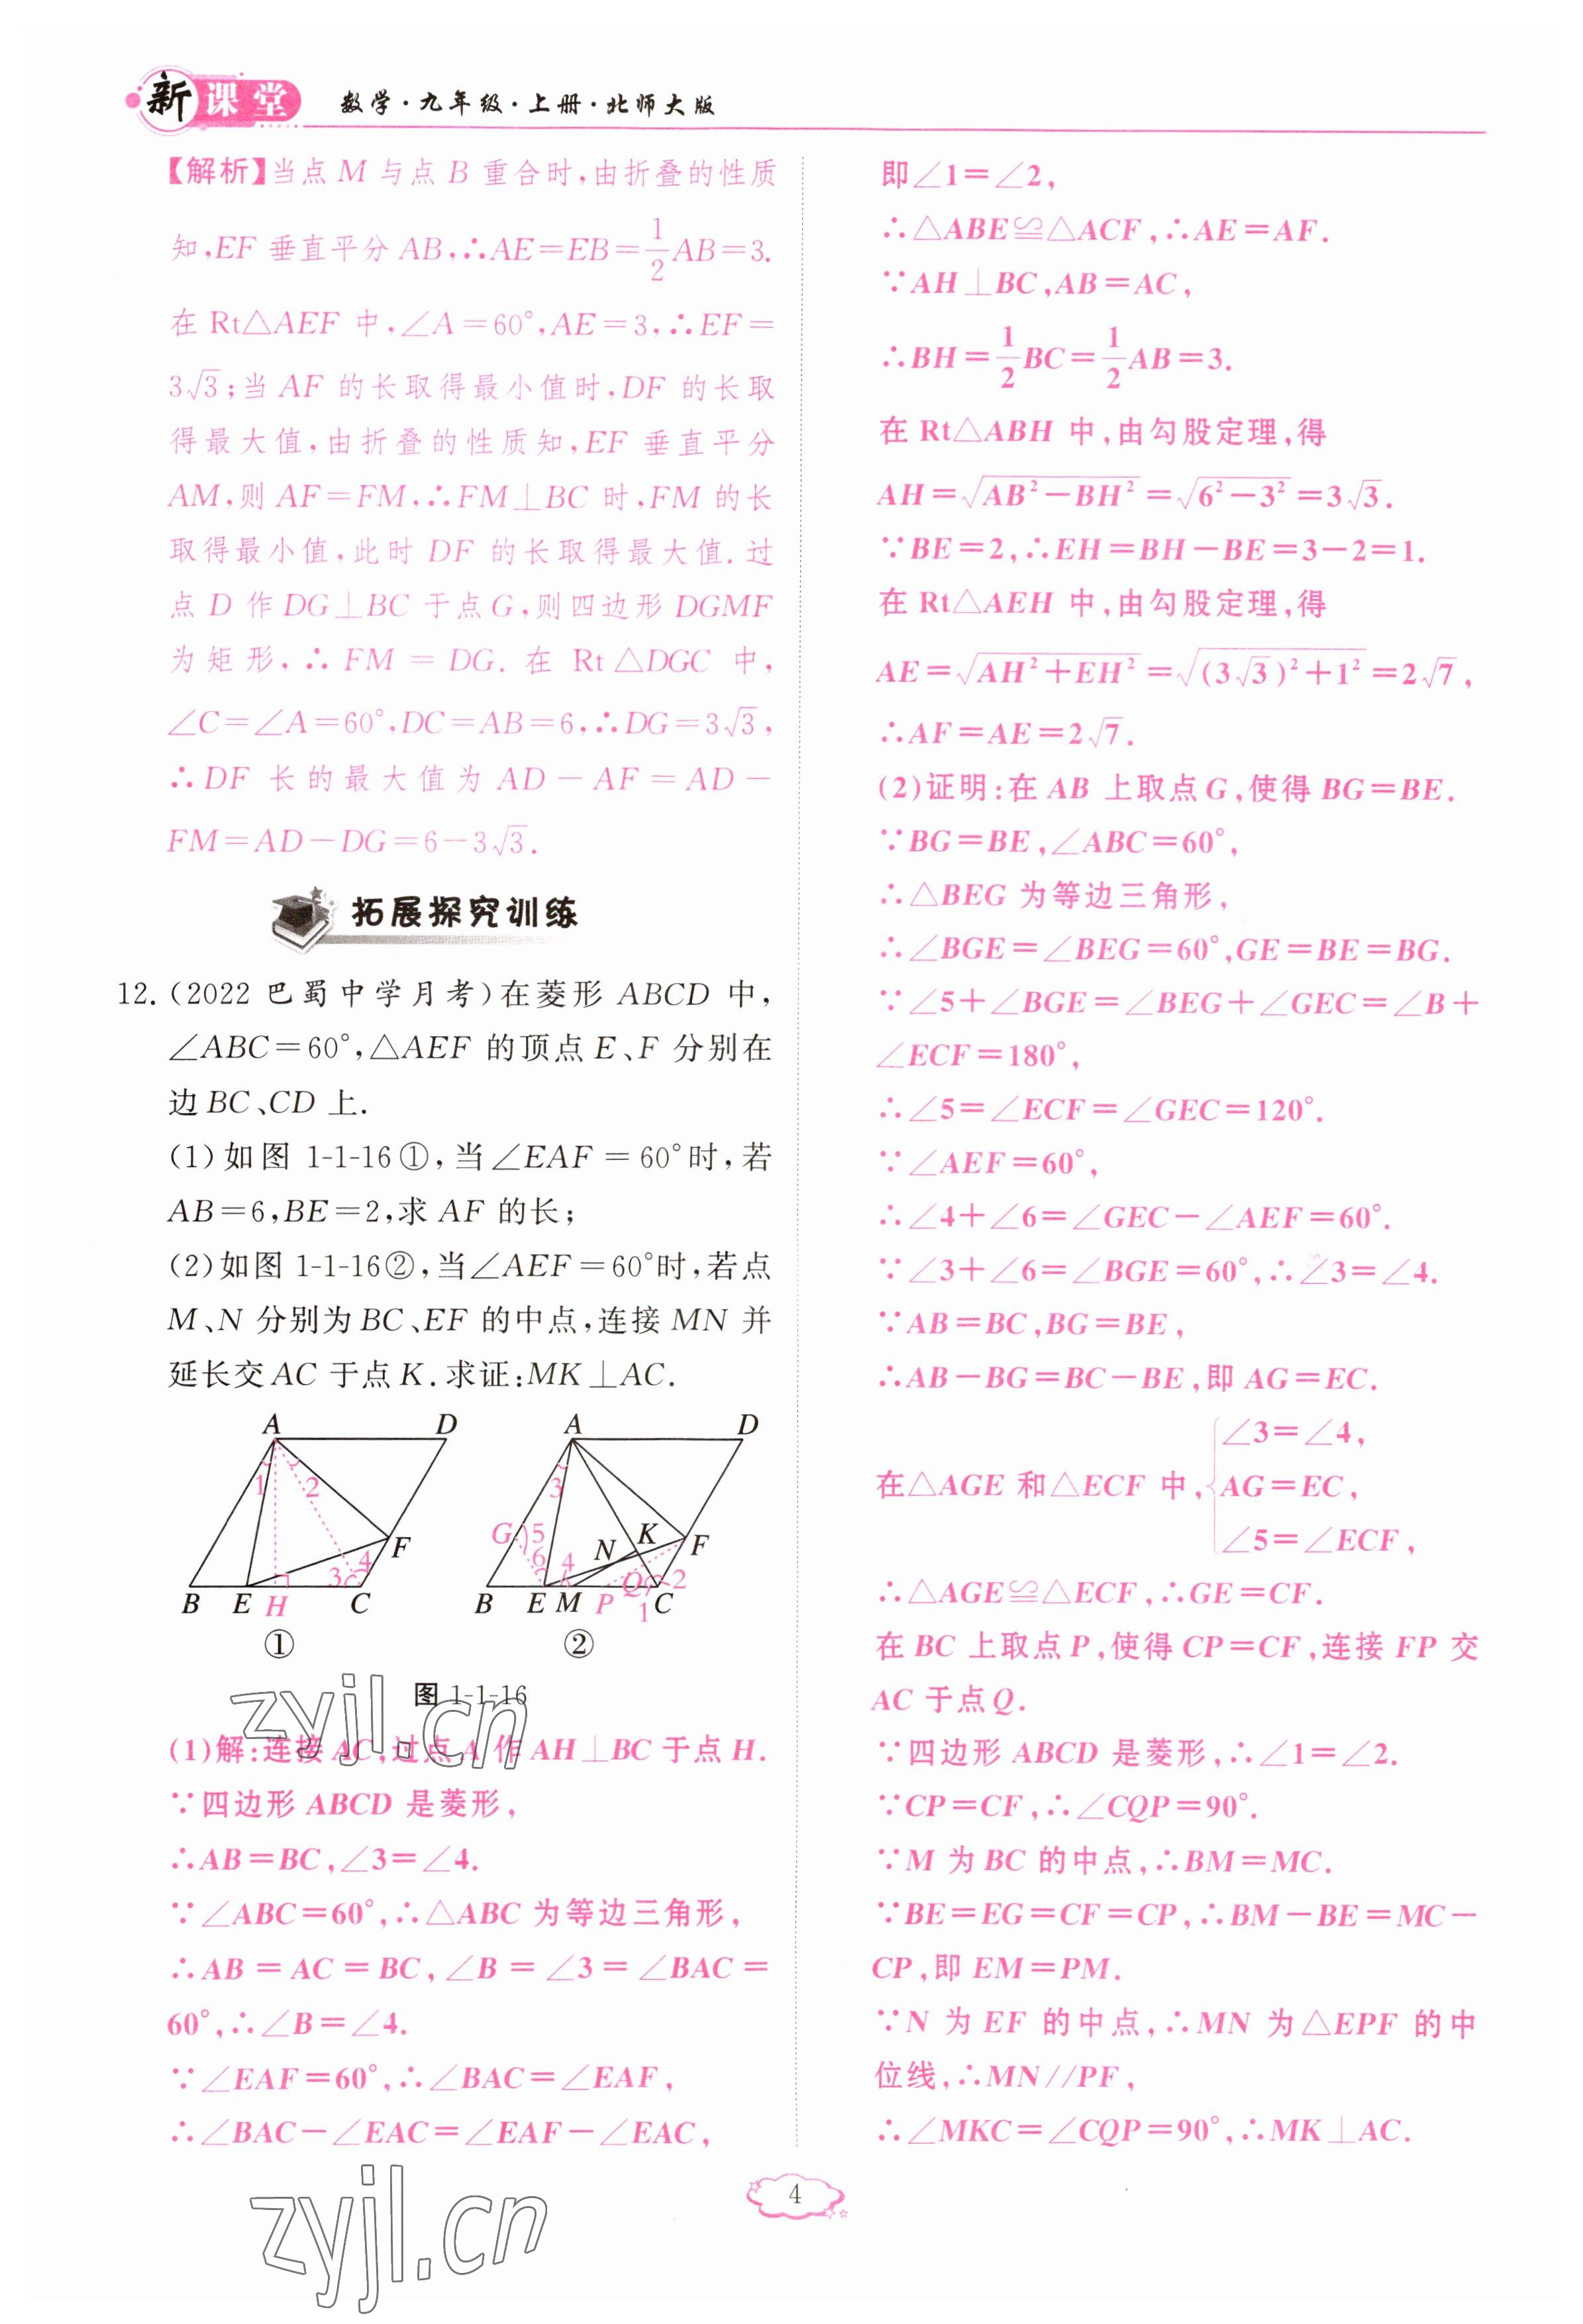 新课堂 数学·九年级·上册·北师大版
【解析】当点 M 与点 B 重合时,由折叠的性质
知,EF 垂直平分 AB,∴AE=EB=1/2AB=3.
在 Rt△AEF 中,∠A=60°,AE=3,∴EF=
3√3;当 AF 的长取得最小值时,DF 的长取
得最大值,由折叠的性质知,EF 垂直平分
AM,则 AF=FM,∴FM⊥BC 时,FM 的长
取得最小值,此时 DF 的长取得最大值.过
点 D 作 DG⊥BC 于点 G,则四边形 DGMF
为矩形,∴FM=DG.在 Rt△DGC 中,
∠C=∠A=60°,DC=AB=6,∴DG=3√3,
∴DF 长的最大值为 AD-AF=AD-
FM=AD-DG=6-3√3.
拓展探究训练
12.(2022 巴蜀中学月考)在菱形 ABCD 中,
∠ABC=60°,△AEF 的顶点 E、F 分别在
边 BC、CD 上.
(1)如图 1-1-16①,当∠EAF=60°时,若
AB=6,BE=2,求 AF 的长;
(2)如图 1-1-16②,当∠AEF=60°时,若点
M、N 分别为 BC、EF 的中点,连接 MN 并
延长交 AC 于点 K.求证:MK⊥AC.
A D A D
1 2 3
F G 5 6 4 N K F
3 4 Q 2
B E H C B E M P 1 C
① ②
图 1-1-16
(1)解:连接 AC,过点 A 作 AH⊥BC 于点 H.
∵四边形 ABCD 是菱形,
∴AB=BC,∠3=∠4.
∵∠ABC=60°,∴△ABC 为等边三角形,
∴AB=AC=BC,∠B=∠3=∠BAC=
60°,∴∠B=∠4.
∵∠EAF=60°,∴∠BAC=∠EAF,
∴∠BAC-∠EAC=∠EAF-∠EAC,
即∠1=∠2,
∴△ABE≌△ACF,∴AE=AF.
∵AH⊥BC,AB=AC,
∴BH=1/2BC=1/2AB=3.
在 Rt△ABH 中,由勾股定理,得
AH=√(AB²-BH²)=√(6²-3²)=3√3.
∵BE=2,∴EH=BH-BE=3-2=1.
在 Rt△AEH 中,由勾股定理,得
AE=√(AH²+EH²)=√((3√3)²+1²)=2√7,
∴AF=AE=2√7.
(2)证明:在 AB 上取点 G,使得 BG=BE.
∵BG=BE,∠ABC=60°,
∴△BEG 为等边三角形,
∴∠BGE=∠BEG=60°,GE=BE=BG.
∵∠5+∠BGE=∠BEG+∠GEC=∠B+
∠ECF=180°,
∴∠5=∠ECF=∠GEC=120°.
∵∠AEF=60°,
∴∠4+∠6=∠GEC-∠AEF=60°.
∵∠3+∠6=∠BGE=60°,∴∠3=∠4.
∵AB=BC,BG=BE,
∴AB-BG=BC-BE,即 AG=EC.
∠3=∠4,
在△AGE 和△ECF 中,{AG=EC,
∠5=∠ECF,
∴△AGE≌△ECF,∴GE=CF.
在 BC 上取点 P,使得 CP=CF,连接 FP 交
AC 于点 Q.
∵四边形 ABCD 是菱形,∴∠1=∠2.
∵CP=CF,∴∠CQP=90°.
∵M 为 BC 的中点,∴BM=MC.
∵BE=EG=CF=CP,∴BM-BE=MC-
CP,即 EM=PM.
∵N 为 EF 的中点,∴MN 为△EPF 的中
位线,∴MN//PF,
∴∠MKC=∠CQP=90°,∴MK⊥AC.
4
zyjl.cn
zyjl.cn